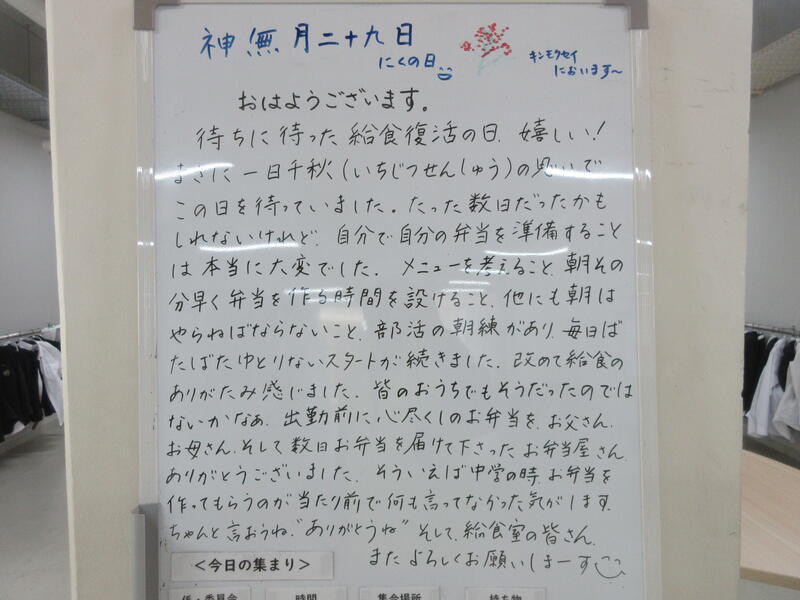 神無月二十九日
にくの日
キンモクセイ
においます〜
おはようございます。
待ちに待った給食復活の日、嬉しい!
まさに一日千秋(いちじつせんしゅう)の思いで
この日を待っていました。たった数日だったかも
しれないけれど、自分で自分の弁当を準備すること
は本当に大変でした。メニューを考えること、朝その
分早く弁当を作る時間を設けること、他にも朝は
やらねばならないこと、部活の朝練があり、毎日ば
たばたゆとりないスタートが続きました。改めて給食の
ありがたみ感じました。皆のおうちでもそうだったのでは
ないかなぁ。出勤前に、心尽くしのお弁当を、お父さん、
お母さん、そして数日お弁当を届けて下さったお弁当屋さん、
ありがとうございました。そういえば中学の時、お弁当を
作ってもらうのが当たり前で何も言ってなかった気がします。
ちゃんと言おうね、"ありがとうね" そして、給食室の皆さん、
またよろしくお願いしまーす
<今日の集まり>
係・委員会 時間 集合場所 持ち物